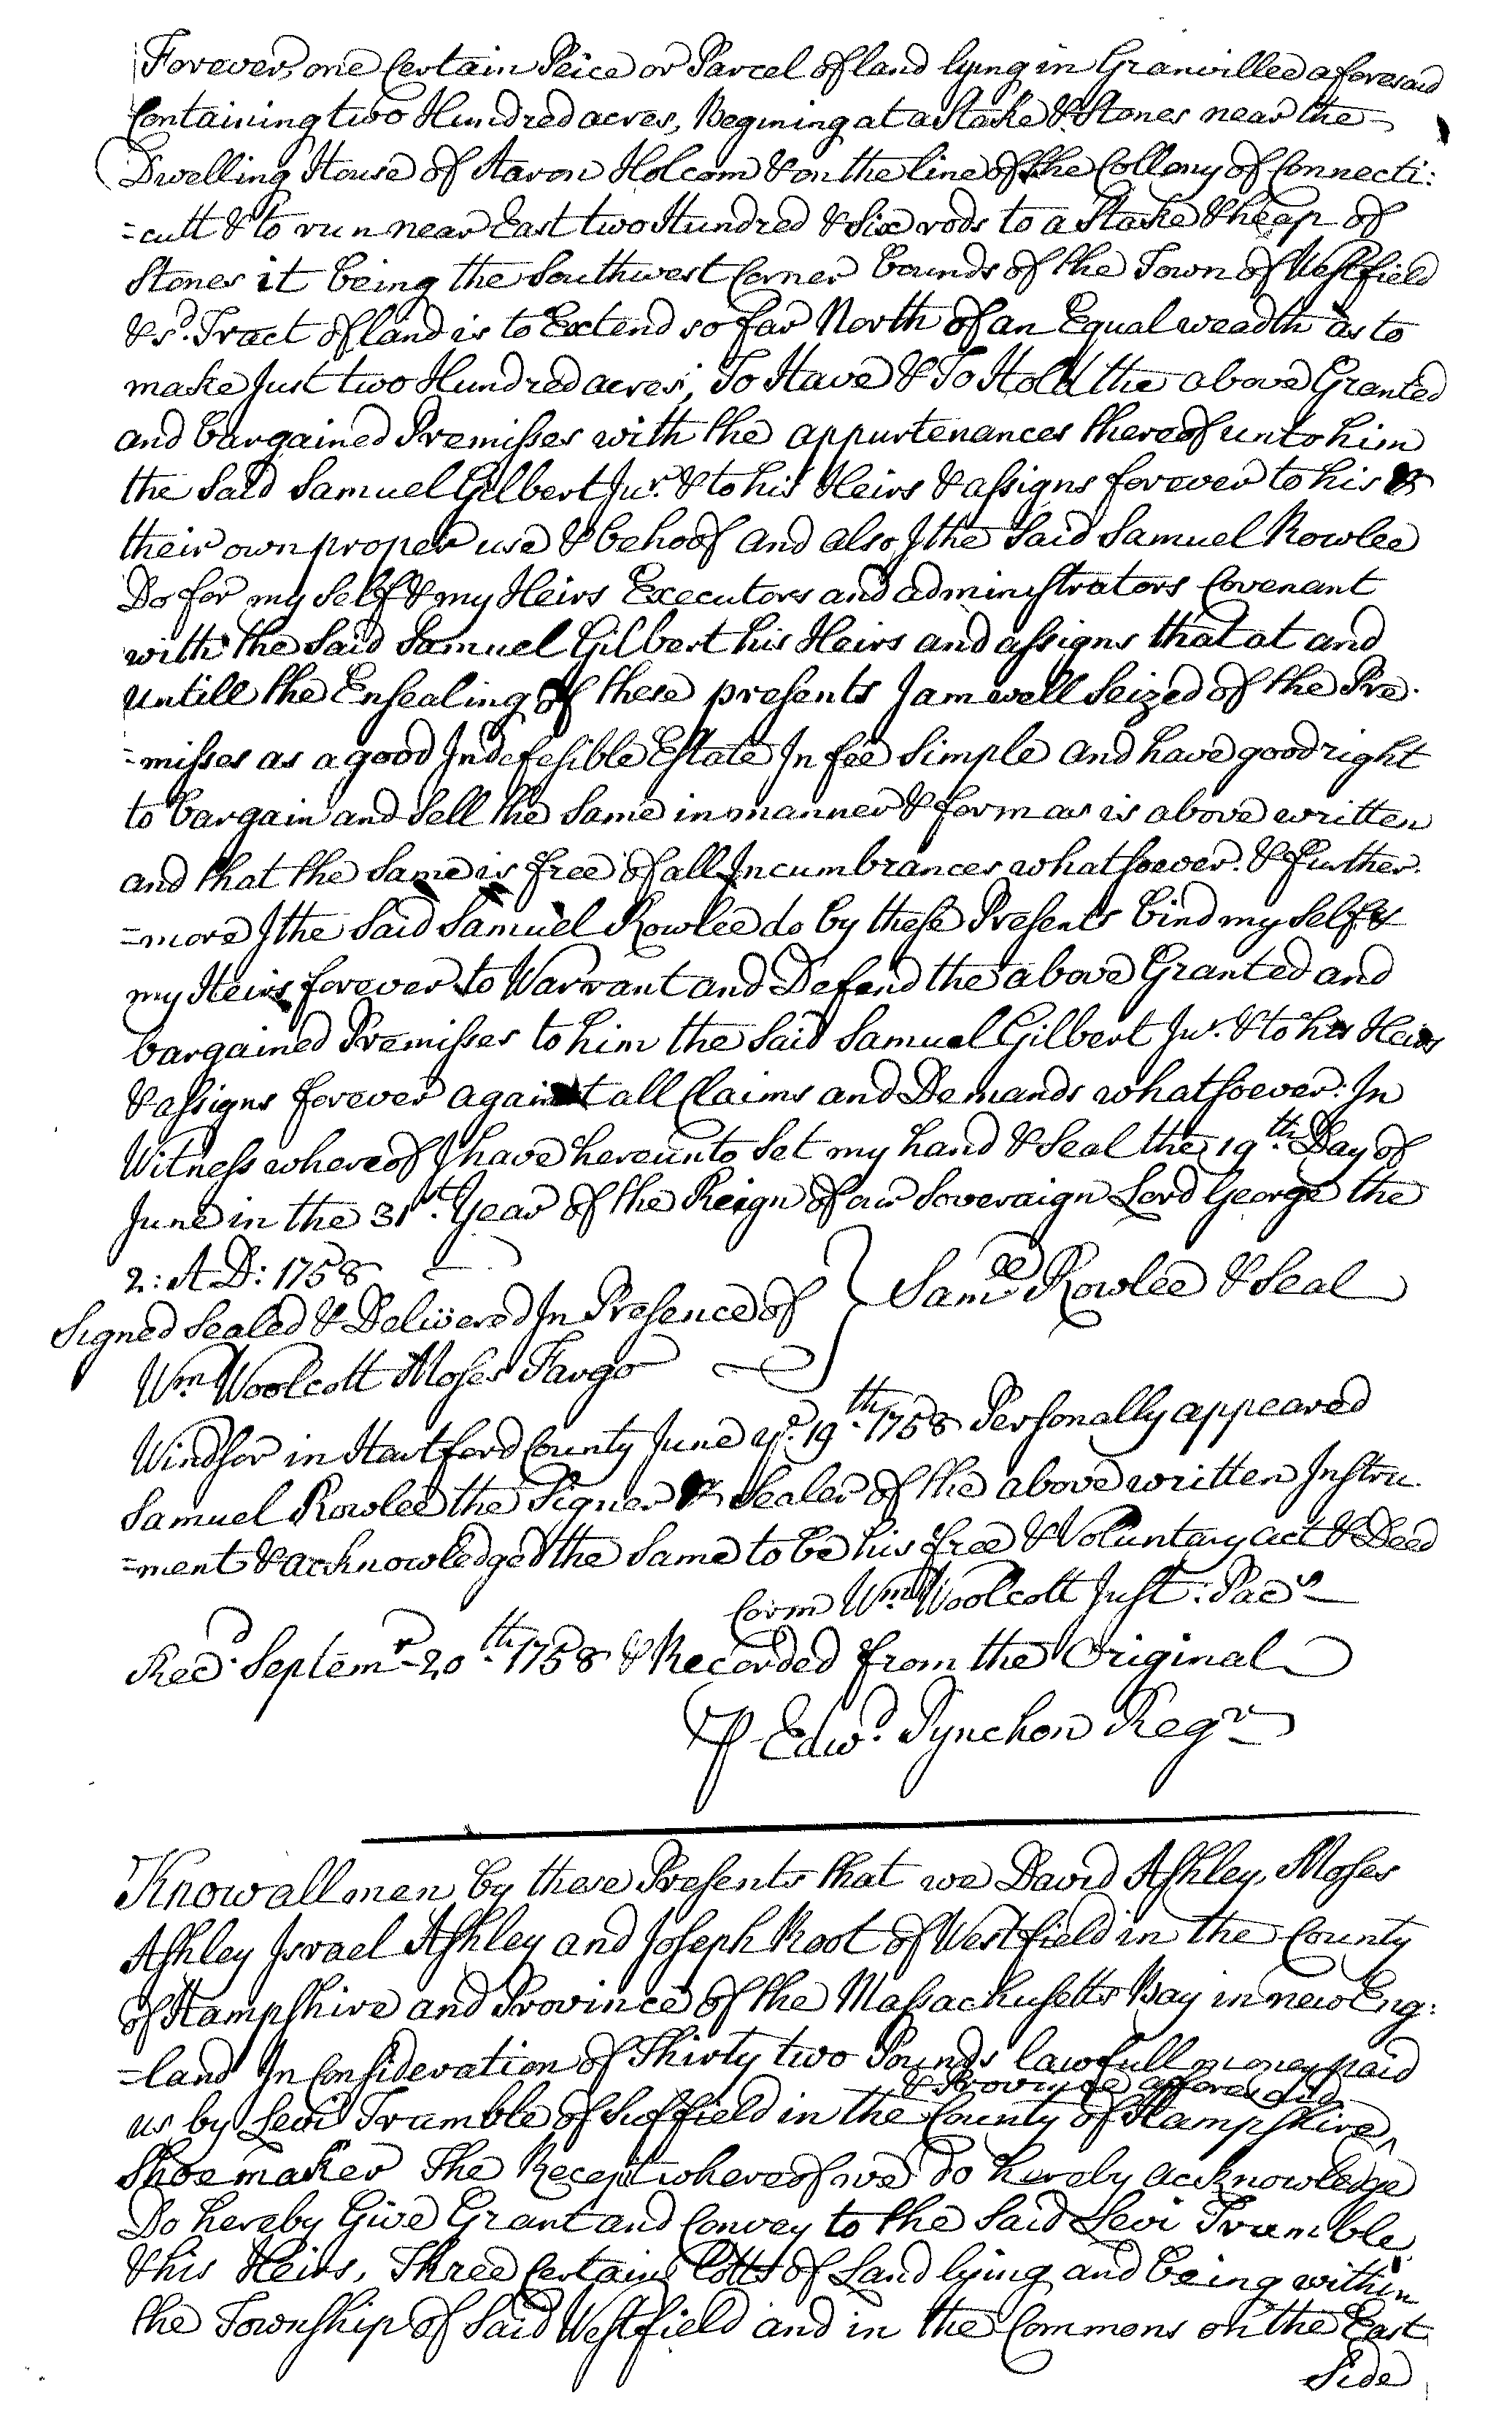 Forever, one Certain Peice or Parcel of land lying in Granville aforesaid
Containing two Hundred acres, Begining at a Stake & Stones near the
Dwelling House of Aaron Holcom & on the line of the Collony of Connecti:
=cutt & to run near East two Hundred & Six rods to a Stake & heap of
Stones it being the Southwest Corner bounds of the Town of Westfield
& sd. Tract of land is to Extend so far North of an Equal weadth as to
make Just two Hundred acres; To Have & To Hold the above Granted
and bargained Premisses with the appurtenances thereof unto him
the Said Samuel Gilbert Jur. & to his Heirs & assigns forever to his &
their own proper use & behoof and also I the Said Samuel Rowlee
Do for my Self & my Heirs Executors and administrators Covenant
with the Said Samuel Gilbert his Heirs and assigns that at and
untill the Ensealing of these presents I am well Seized of the Pre-
=misses as a good Indefesible Estate In fee Simple and have good right
to bargain and Sell the Same in manner & form as is above written
and that the Same is free of all Incumbrances whatsoever. & further-
=more I the Said Samuel Rowlee do by these Presents bind my Self &
my Heirs forever to Warrant and Defend the above Granted and
bargained Premisses to him the Said Samuel Gilbert Jur. & to his Heirs
& assigns forever against all Claims and Demands whatsoever: In
Witness whereof I have hereunto Set my hand & Seal the 19th. Day of
June in the 31st. Year of the Reign of our Soveraign Lord George the
2: A D: 1758
Signed Sealed & Delivered In Presence of } Samll Rowlee & Seal
Wm. Woolcott Moses Fargo
Windsor in Hartford County June ye. 19th. 1758 Personally appeared
Samuel Rowlee the Signer & Sealer of the above written Instru-
=ment & acknowledged the Same to be his free & Voluntary act & Deed
Corm Wm. Woolcott Just: Pacs
Recd. Septemr. 20th. 1758 & Recorded from the Original
P Edwd. Pynchon Regr
Know all men by these Presents that we David Ashley, Moses
Ashley Israel Ashley and Joseph Root of Westfield in the County
of Hampshire and Province of the Massachusetts Bay in new Eng:
=land In Consideration of Thirty two Pounds lawfull money paid
& Province afforesaid
us by Levi Trumble of Suffield in the County of Hampshire ^
Shoemaker The Receipt whereof we do hereby acknowledge
Do hereby Give Grant and Convey to the Said Levi Trumble
& his Heirs, Three Certain Lotts of Land lying and being within
the Township of Said Westfield and in the Commons on the East
Side